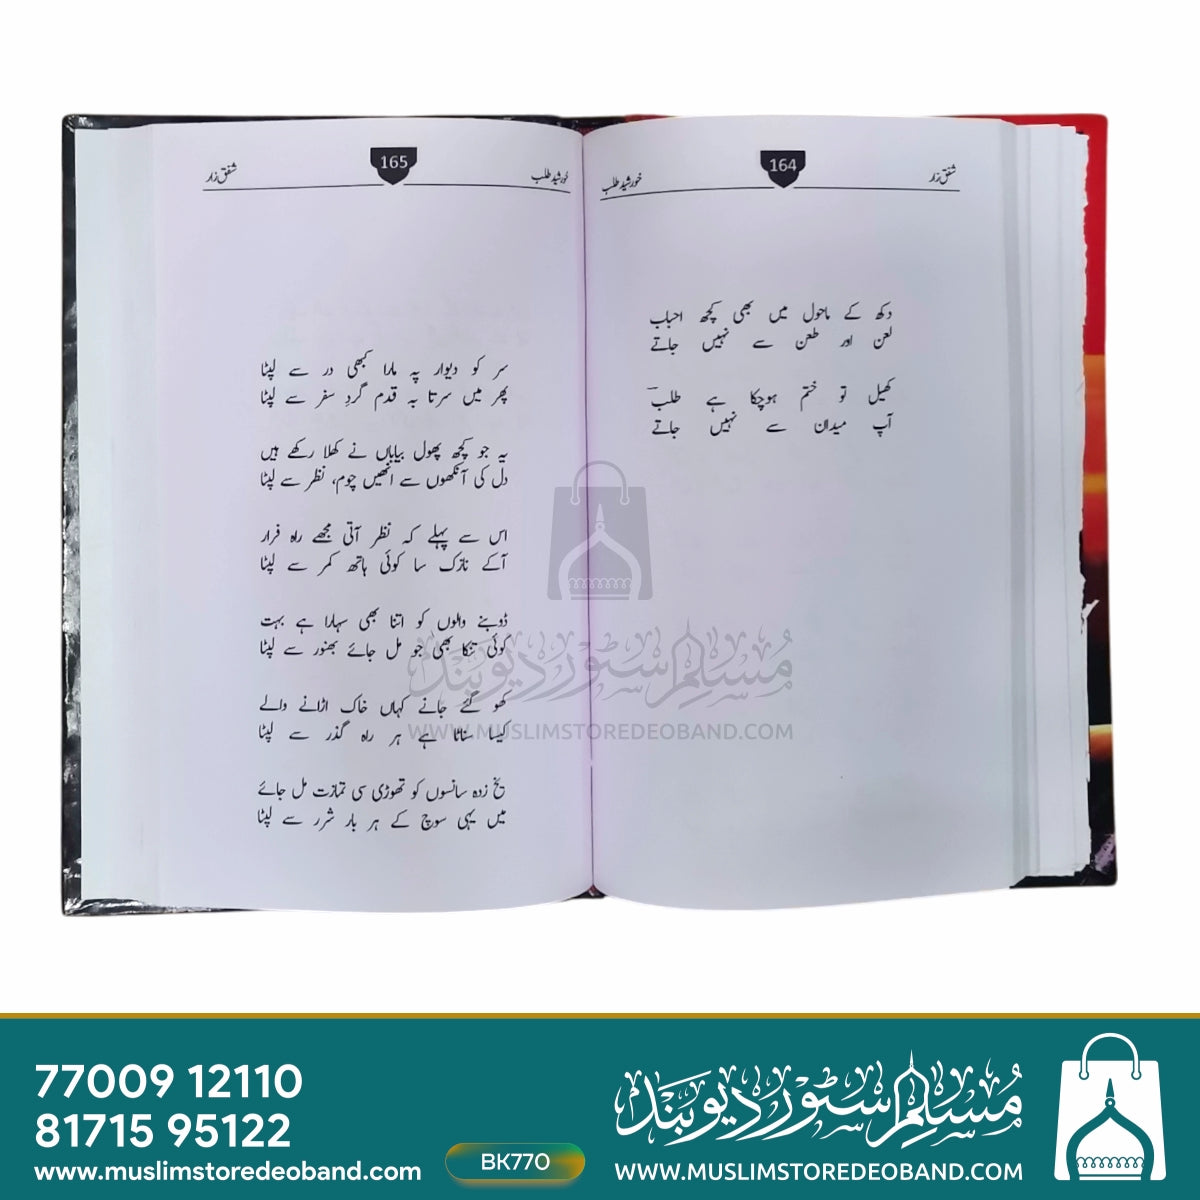 شفق زار
164
خورشید طلب
دکھ کے ماحول میں بھی کچھ احباب
لعن اور طعن سے نہیں جاتے
کھیل تو ختم ہوچکا ہے طلبؔ
آپ میدان سے نہیں جاتے
خورشید طلب
165
شفق زار
سر کو دیوار پہ مارا کبھی در سے لپٹا
پھر میں سرتا بہ قدم گردِ سفر سے لپٹا
یہ جو کچھ پھول بیاباں نے کھلا رکھے ہیں
دل کی آنکھوں سے انھیں چوم، نظر سے لپٹا
اس سے پہلے کہ نظر آتی مجھے راہ فرار
آکے نازک سا کوئی ہاتھ کمر سے لپٹا
ڈوبنے والوں کو اتنا بھی سہارا ہے بہت
کوئی تنکا بھی جو مل جائے بھنور سے لپٹا
کھو گئے جانے کہاں خاک اڑانے والے
کیسا سناٹا ہے ہر راہ گذر سے لپٹا
یخ زدہ سانسوں کو تھوڑی سی تمازت مل جائے
میں یہی سوچ کے ہر بار شرر سے لپٹا
مسلم سٹور دیوبند
WWW.MUSLIMSTOREDEOBAND.COM
77009 12110
81715 95122
www.muslimstoredeoband.com
BK770
مسلم سٹور دیوبند
WWW.MUSLIMSTOREDEOBAND.COM